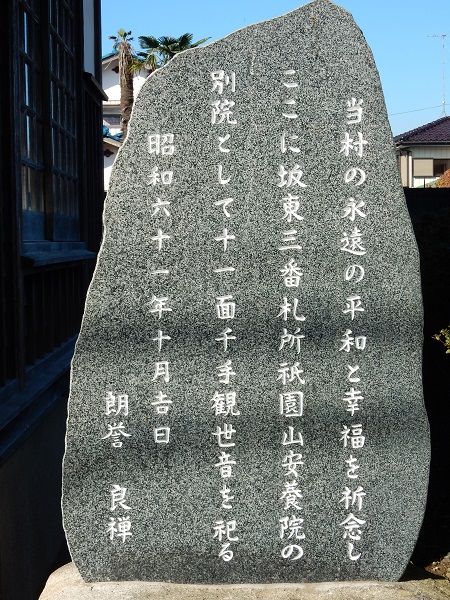 当村の永遠の平和と幸福を祈念し
ここに坂東三番札所祇園山安養院の
別院として十一面千手観世音を祀る
昭和六十一年十月吉日
朗誉 良禅